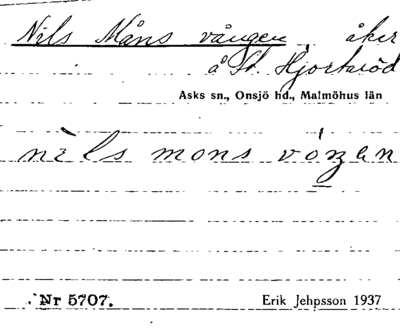 Nils Måns vången, åker
å St. Hjortaröd
Asks sn., Onsjö hd., Malmöhus län
nìls mons vóŋen
Nr 5707. Erik Jehpsson 1937